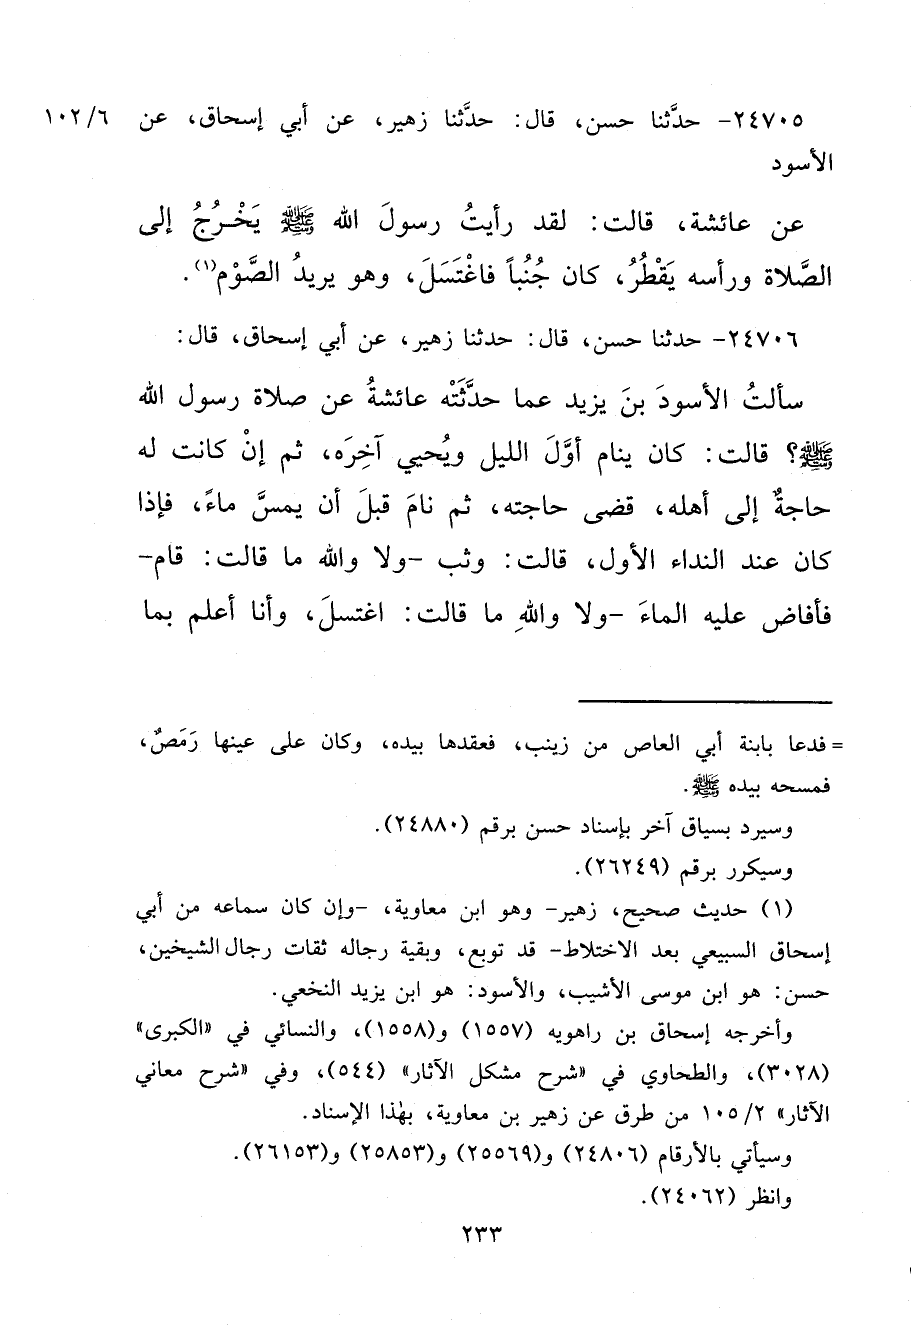 ٢٤٧٠٥- حدَّثنا حسن، قال: حدَّثنا زهير، عن أبي إسحاق، عن ١٠٢/٦
الأسود
عن عائشة، قالت: لقد رأيتُ رسولَ الله ﷺ يَخْرُجُ إلى
الصَّلاة ورأسه يَقْطُرُ، كان جُنُباً فاغْتَسَلَ، وهو يريدُ الصَّوْم(١).
٢٤٧٠٦- حدثنا حسن، قال: حدثنا زهير، عن أبي إسحاق، قال:
سألتُ الأسودَ بنَ يزيد عما حدَّثَتْه عائشةُ عن صلاة رسول الله
ﷺ؟ قالت: كان ينام أوَّلَ الليل ويُحيي آخِرَه، ثم إنْ كانت له
حاجةٌ إلى أهله، قضى حاجته، ثم نامَ قبلَ أن يمسَّ ماءً، فإذا
كان عند النداء الأول، قالت: وثب -ولا والله ما قالت: قام-
فأفاض عليه الماءَ -ولا واللهِ ما قالت: اغتسلَ، وأنا أعلم بما
= فدعا بابنة أبي العاص من زينب، فعقدها بيده، وكان على عينها رَمَصٌ،
فمسحه بيده ﷺ.
وسيرد بسياق آخر بإسناد حسن برقم (٢٤٨٨٠).
وسيكرر برقم (٢٦٢٤٩).
(١) حديث صحيح، زهير- وهو ابن معاوية، -وإن كان سماعه من أبي
إسحاق السبيعي بعد الاختلاط- قد توبع، وبقية رجاله ثقات رجال الشيخين،
حسن: هو ابن موسى الأشيب، والأسود: هو ابن يزيد النخعي.
وأخرجه إسحاق بن راهويه (١٥٥٧) و(١٥٥٨)، والنسائي في «الكبرى»
(٣٠٢٨)، والطحاوي في «شرح مشكل الآثار» (٥٤٤)، وفي «شرح معاني
الآثار» ١٠٥/٢ من طرق عن زهير بن معاوية، بهٰذا الإسناد.
وسيأتي بالأرقام (٢٤٨٠٦) و(٢٥٥٦٩) و(٢٥٨٥٣) و(٢٦١٥٣).
وانظر (٢٤٠٦٢).
٢٣٣